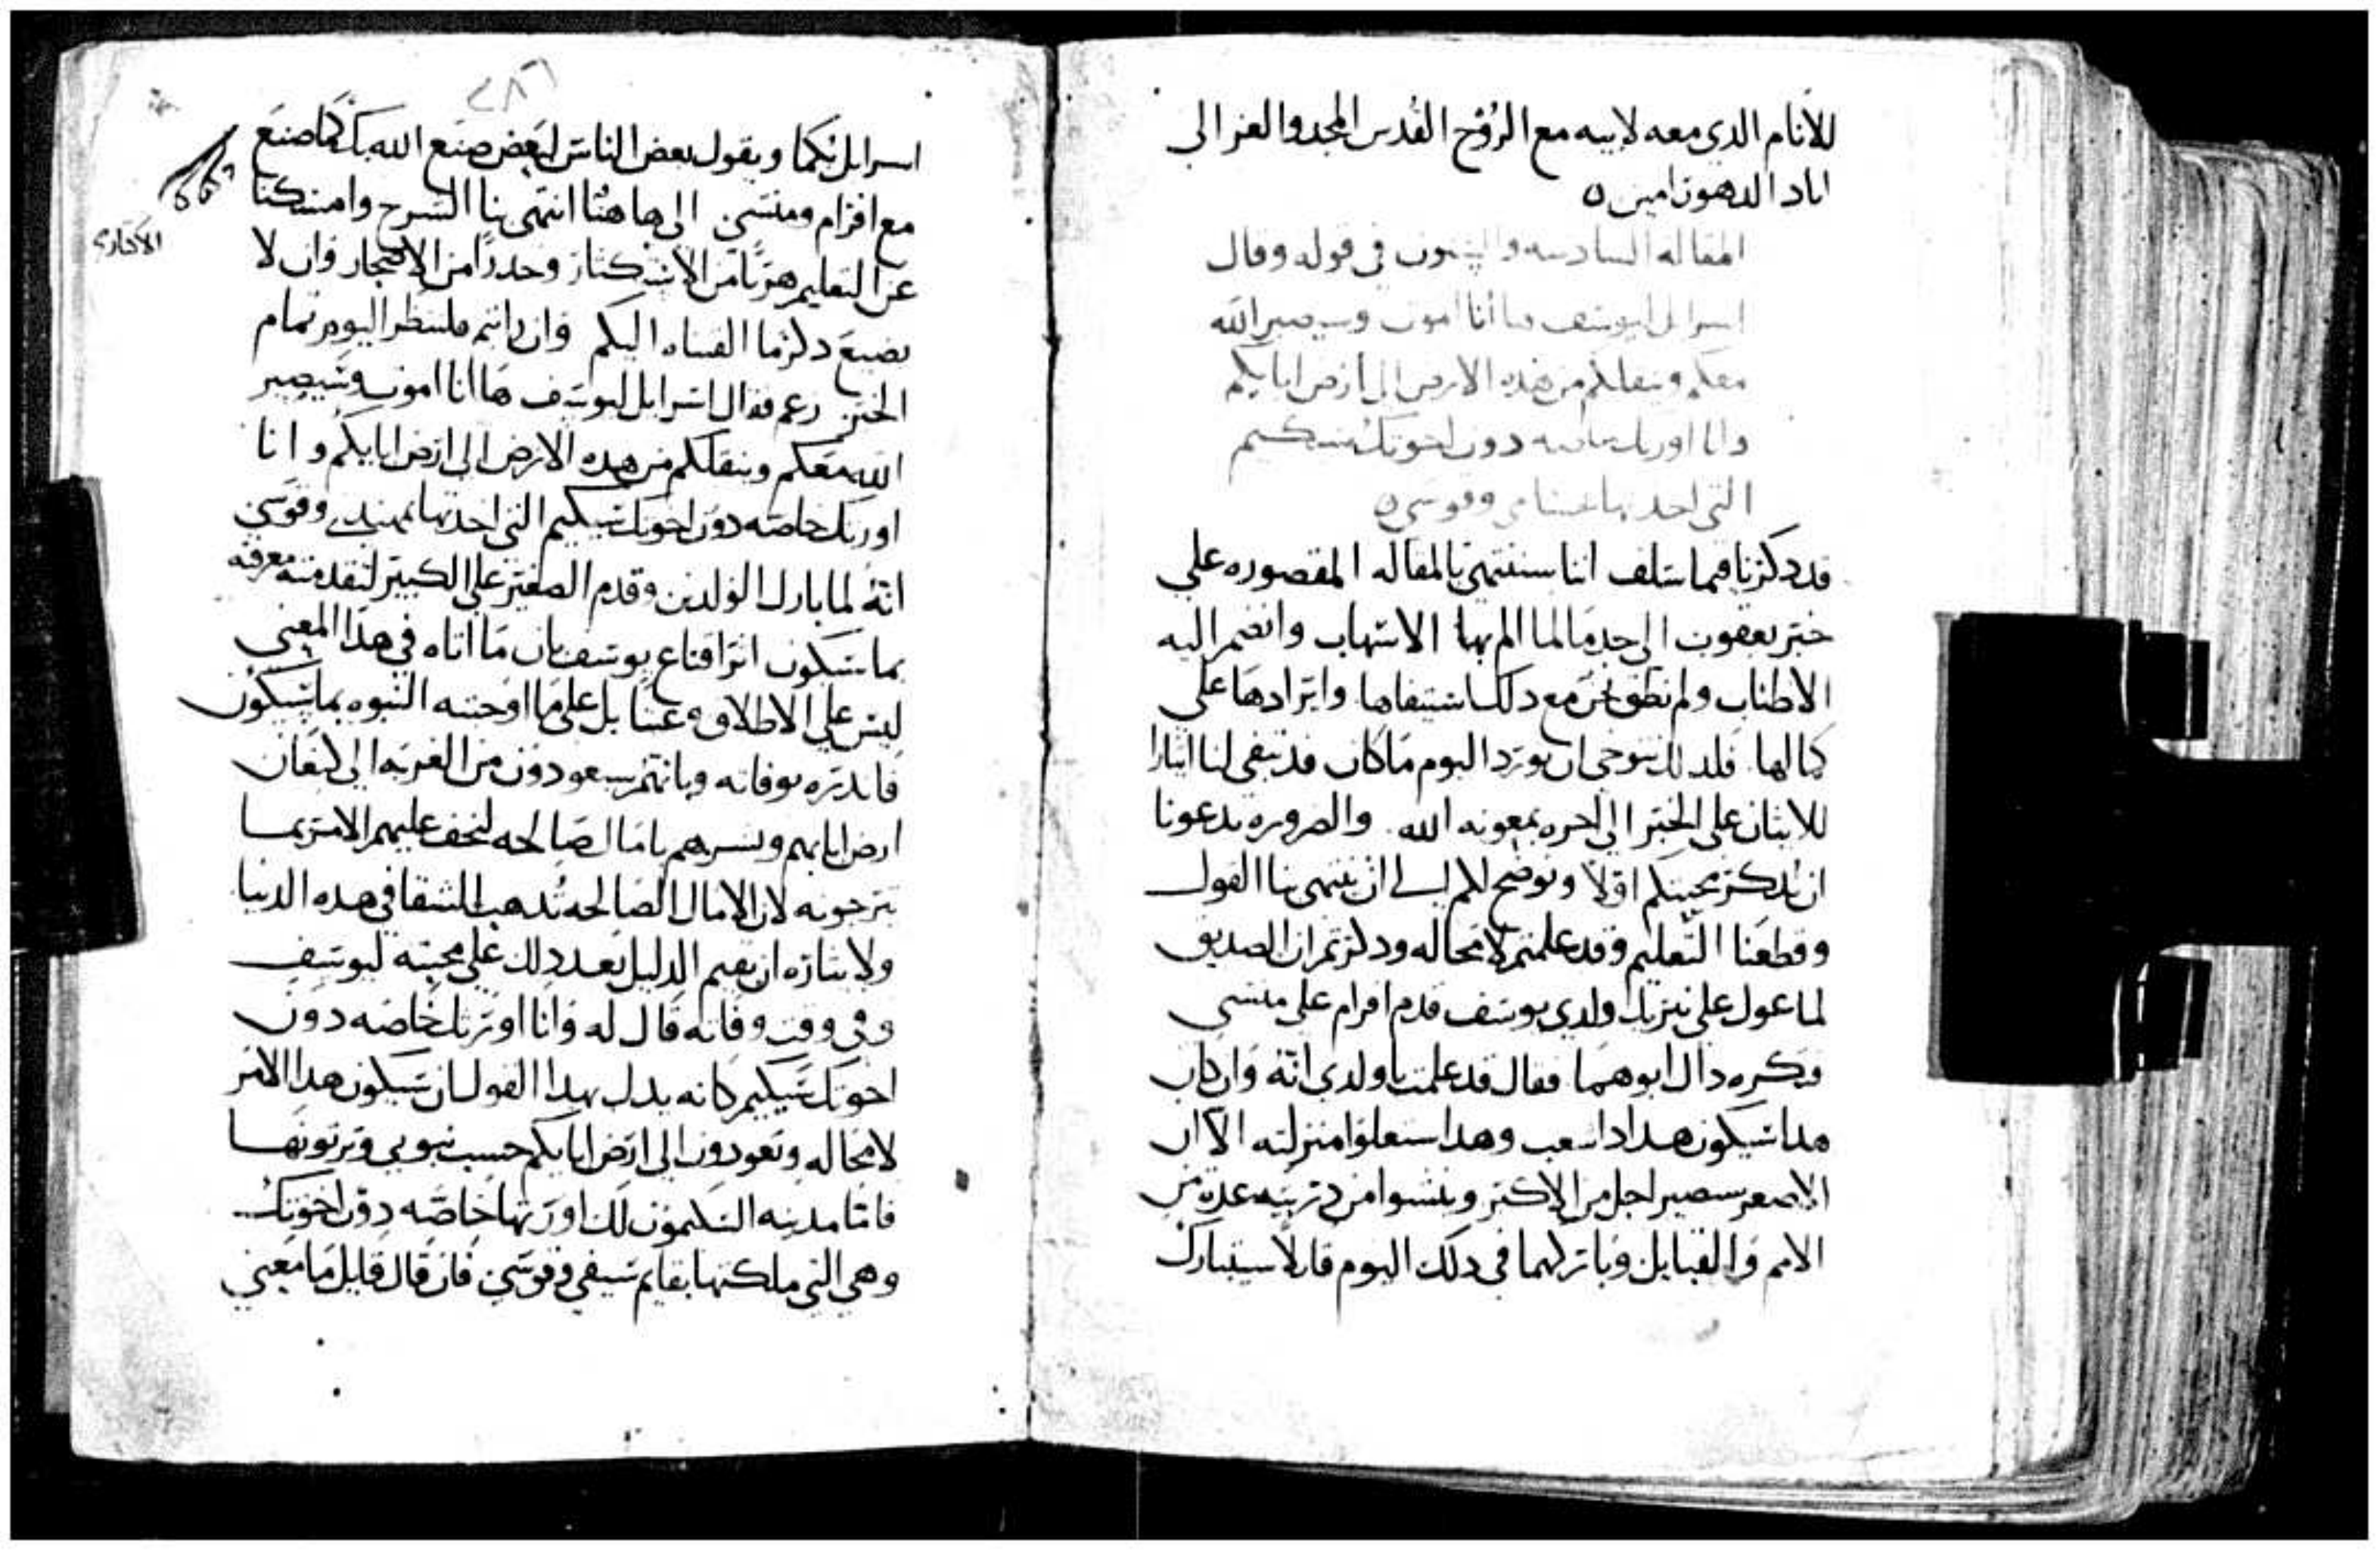 للانام الدي معه لابيه مع الرُوح القُدس المجد والعز الى
اباد الدهور امين ه
المقاله السادسه والستون في قوله وقال
اسرايل ليوسف ها أنا اموت وسيصير الله
معكم وينقلكم من هذه الارض الى ارض ابايكم
وانا اورتك خاصه دون اخوتك سكيم
التي اخدتها وقوسي ه
قد دكرنا فيما سلف اننا سننتهي بالمقاله المقصوره على
خبر يعقوب الى حد ما لما الم بها الاسهاب وانضم اليه
الاطناب ولم نطق نحن مع دلك استيفاها وايرادها على
كمالها فلدلك نتوخى ان نورد اليوم ما كان قد تبقى لنا
للاتيان على الخبر الى اخره بمعونه الله والضروره تدعونا
ان ندكر محبتكم اولا ونوضح لكم الى اين انتهى بنا القول
وقطعنا التعليم وقد علمتم لا محاله ودكرتم ان الصديق
لما عول على تبريك ولدي يوسف قدم افرام على منسى
فكره داك ابوهما فقال قد علمت ياولدي انه وان كان
هدا سيكون هدا دا شعب وهدا ستعلوا منزلته الا ان
الاصغر سيصير اجل من الاكبر وينشوا من دريته عده من
الامم والقبايل وباركهما في دلك اليوم قايلا سيتبارك
٢٨٦
اسرايل بكما ويقول بعض الناس لبعض صنع الله بك كما صنع
مع افرام ومنسى الى هاهنا انتهى بنا الشرح وامسكنا
عن التعليم هربًا من الاستكثار وحدرًا من الاضجار وان لا
نضيع دكر ما القيناه اليكم وان رايتم فلننظر اليوم تمام
الخبر زعم فقال اسرايل ليوسف ها انا اموت وسيصير
الله معكم وينقلكم من هده الارض الى ارض ابايكم وانا
اورتك خاصه دون اخوتك سكيم التي اخدتها وقوسي
انه لما بارك الولدين وقدم الصغير على الكبير لتقدمه معرفه
بما سيكون اثر اقناع يوسف بان ما اتاه في هدا المعنى
ليس على الاطلاق وعبثا بل على ما اوحته النبوه بما سيكون
فاندره بوفاته وبانهم سيعودون من الغربه الى كنعان
ارض ابايهم ويسرهم بامال صالحه لتخف عليهم الامر بما
يترجونه لان الامال الصالحه تُدهب الشقا في هده الدنيا
ولايثاره ان يقيم الدليل بعد دلك على محبته ليوسف
وفي وقت وفاته قال له وانا اورتك خاصه دون
اخوتك سكيم كانه يدل بهدا القول ان سيكون هدا الامر
لا محاله وتعودون الى ارض ابايكم حسب نبوتي وترتونها
فاما مدينه السكيمون لك اورتها خاصه دون اخوتك
وهي التي ملكتها بقايم سيفي وقوسي فان قال قايل ما معنى